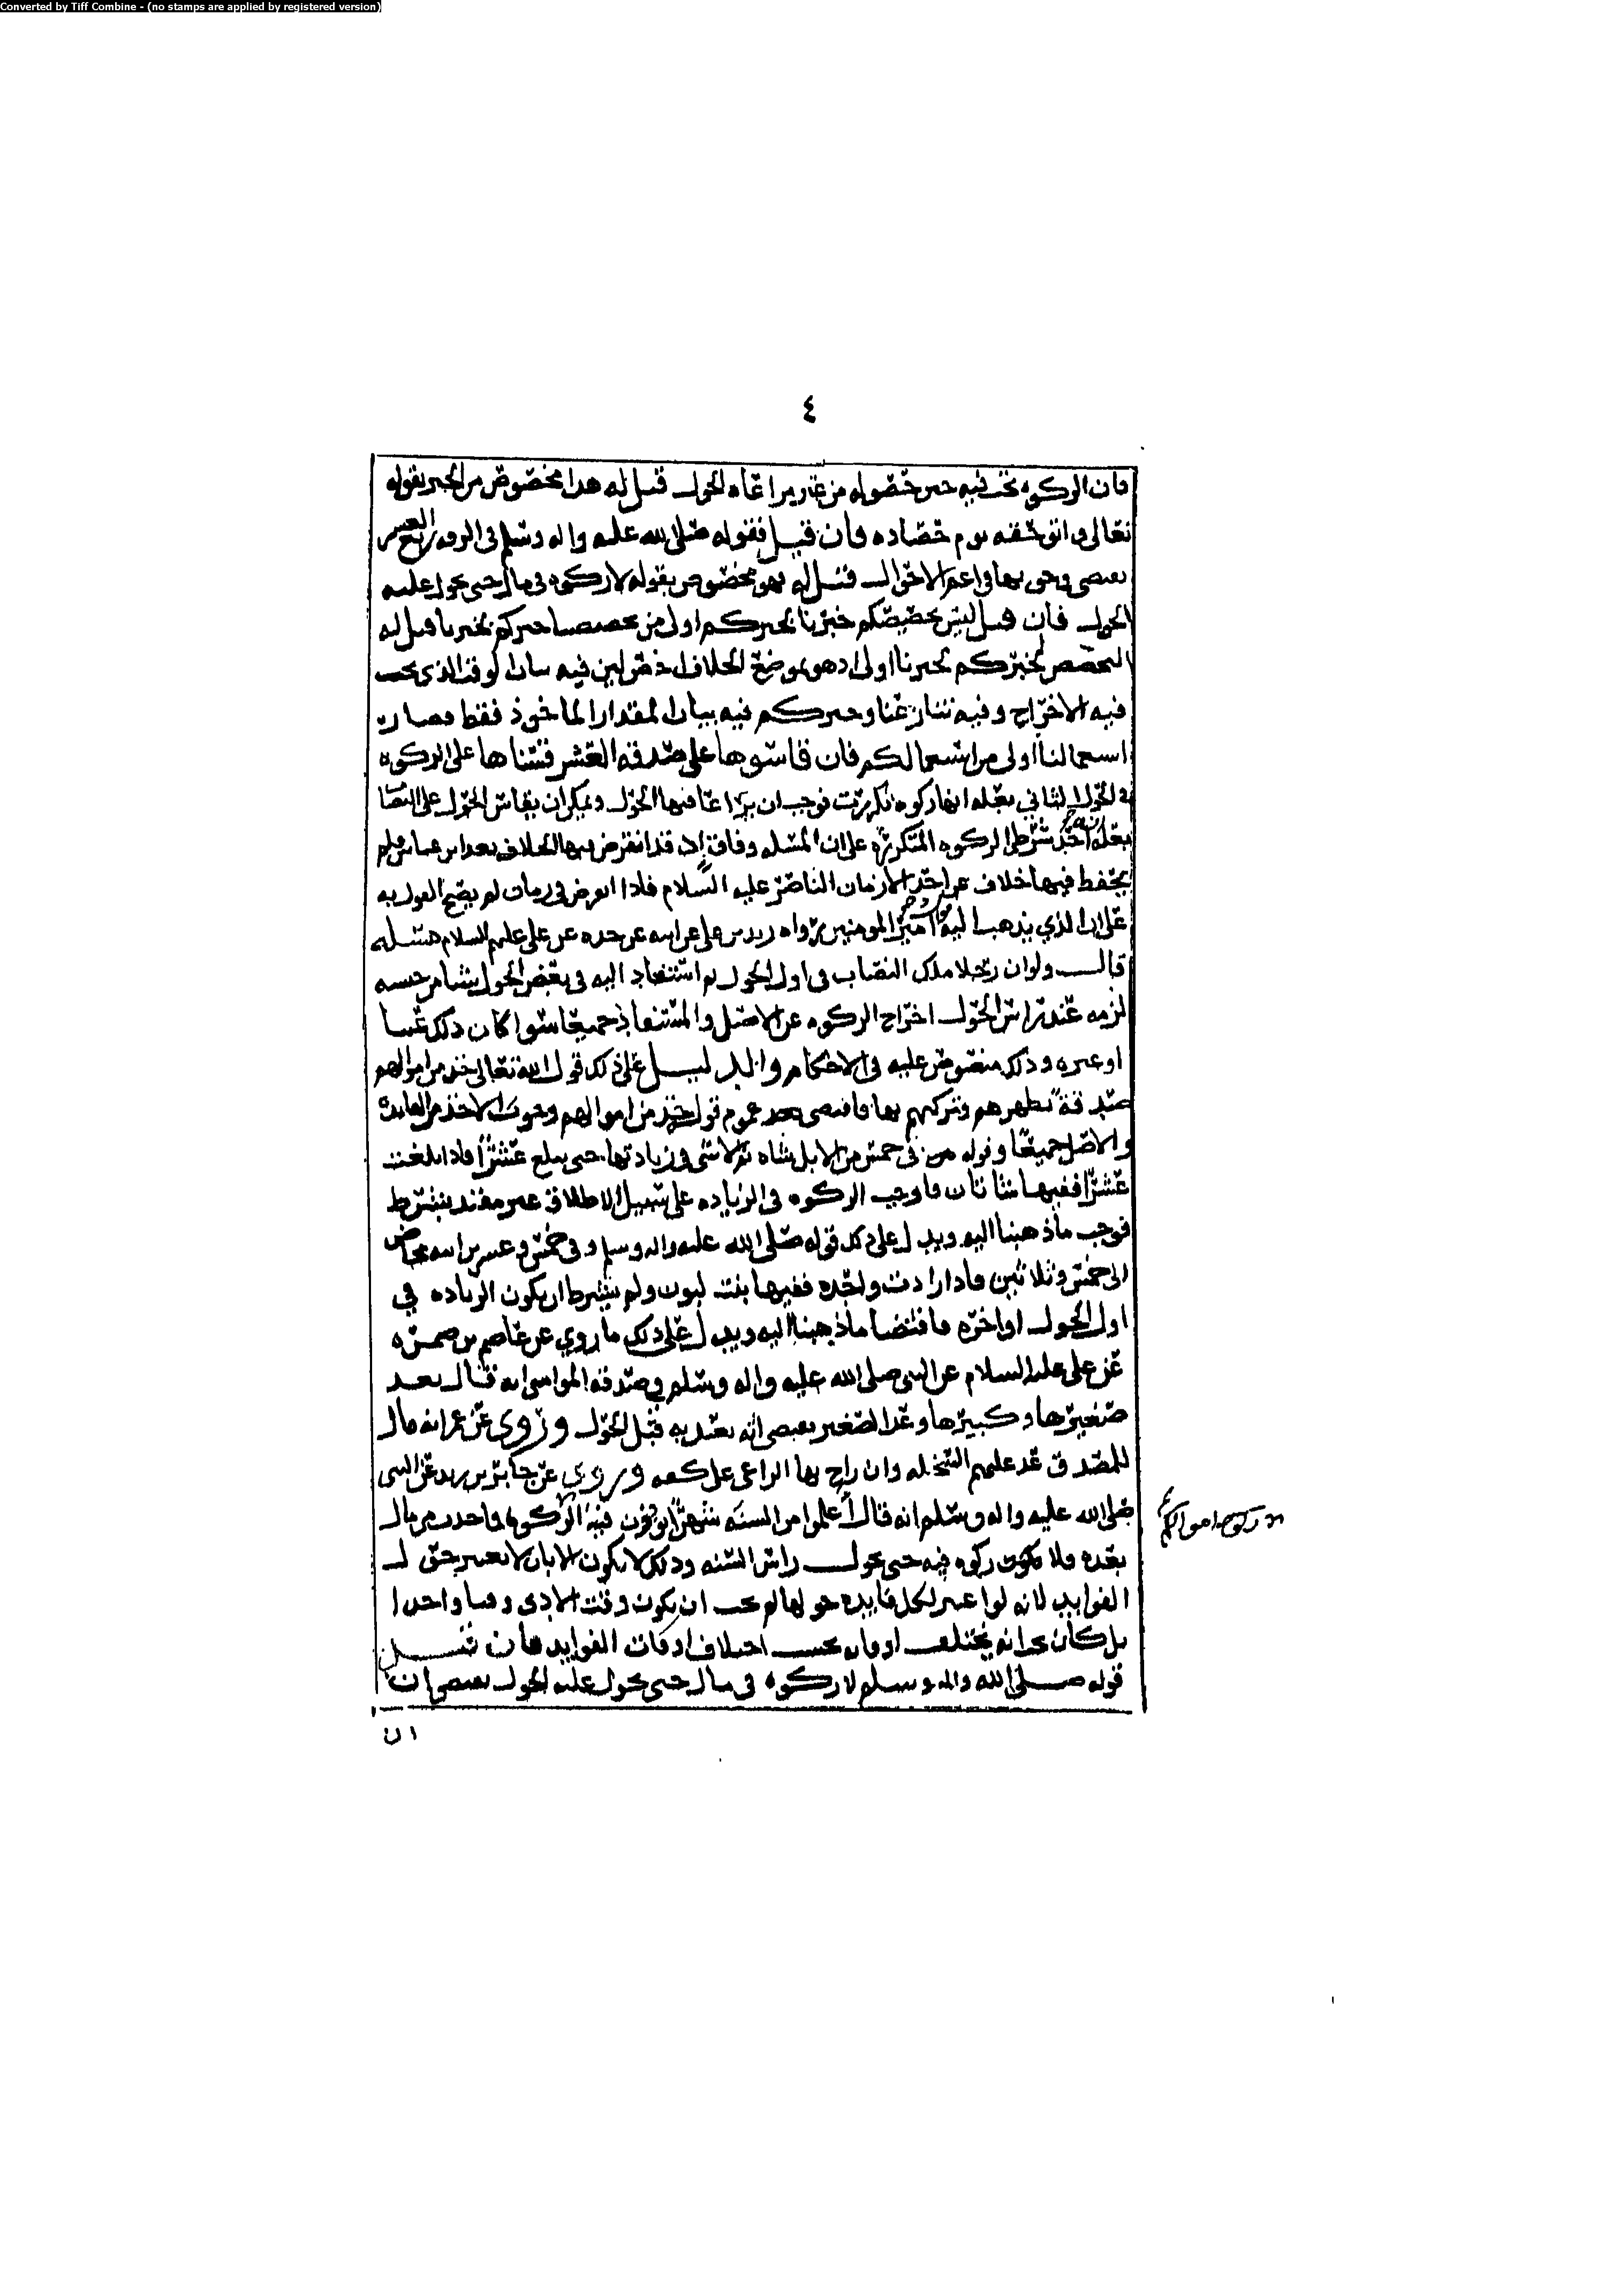 Converted by Tiff Combine - (no stamps are applied by registered version)
٤
فان الزكوه تجب فيه حين حصوله من غير مراعاه الحول قيل له هذا مخصوص من الخبر بقوله
تعالى واتو حقه يوم حصاده فان قيل فقوله صلى الله عليه واله وسلم في الرقه ربع العشر
يقتضي وجوبها في اعم الاحوال قيل له فهو مخصوص بقوله لا زكوه في مال حتى يحول عليه
الحول فان قيل ليس تخصيصكم خبرنا بخبركم اولى من تخصيصنا خبركم بخبرنا قيل له
التخصيص لخبركم بخبرنا اولى اذ هو موضع الخلاف اخص لان فيه بيان الوقت الذي يجب
فيه الاخراج وفيه تنازعنا وخبركم فيه بيان المقدار الماخوذ فقط فصار
استعمالنا اولى من استعمالكم فان قاسوها على صدقه العشر قسناها على الزكوه
في الحول الثاني بعله انها زكوه تكررت فوجب ان يراعا فيها الحول ويمكن ان يقاس الحول على النصاب
بعله انه احد شرطي الزكوه المتكرره على ان المسله وفاق اذ قد انقرض فيها الخلاف بعد ابن عباس فلم
يحفظ فيها خلاف عن احد الازمان الناصر عليه السلام فاذا انقرض في زمان لم يصح القول به
على ان الذي يذهب اليه هو قول امير المومنين رواه زيد بن علي عن ابيه عن جده عن علي عليهم السلام مسله
قال ولو ان رجلا ملك النصاب في اول الحول ثم استفاد اليه في بعض الحول شيا من جنسه
لزمه عند راس الحول اخراج الزكوه عن الاصل والمستفاد جميعا سوا كان ذلك عينا
او غيره وذلك منصوص عليه في الاحكام والدليل على ذلك قول الله تعالى خذ من اموالهم
صدقة تطهرهم وتزكيهم بها فاقتضى عموم قوله خذ من اموالهم وجوب الاخذ من الفايده
والاصل جميعا وقوله في خمس من الابل شاه ثم لا شي في زيادتها حتى يبلغ عشرا فاذا بلغت
عشرا ففيها شاتان فاوجب الزكوه في الزياده على سبيل الاطلاق غير مقيد بشرط
فوجب ما ذهبنا اليه ويدل على ذلك قوله صلى الله عليه واله وسلم وفي خمس وعشرين ابنه مخاض
الى خمس وثلاثين فاذا زادت واحده ففيها بنت لبون ولم يشترط ان يكون الزياده في
اول الحول او اخره فاقتضا ما ذهبنا اليه ويدل على ذلك ما روي عن عاصم بن ضمره
عن علي عليه السلام عن النبي صلى الله عليه واله وسلم في صدقه المواشي انه قال يعد
صغيرها وكبيرها وعد الصغير يقتضي انه يعتد به قبل الحول وروي عن عمر انه قال
للمصدق عد عليهم السخله وان راح بها الراعي على كفه وروي عن جابر بن زيد عن النبي
صلى الله عليه واله وسلم انه قال اعلموا من السنه شهرا تودون فيه الزكوه فما حدث من مال
زكوه اموالكم
بعده فلا تكون زكوه فيه حتى يحول راس السنه وذلك لا يكون الا بان لا يعتبر حول
الفوايد لانه لو اعتبر لكل فايده حولها لم يجب ان يكون وقت الادى وقتا واحدا
بل كان يجب انه يختلف اوقاته بحسب اختلاف اوقات الفوايد فان قيل
قوله صلى الله واله وسلم لا زكوه في مال حتى يحول عليه الحول يقتضي ان
ان